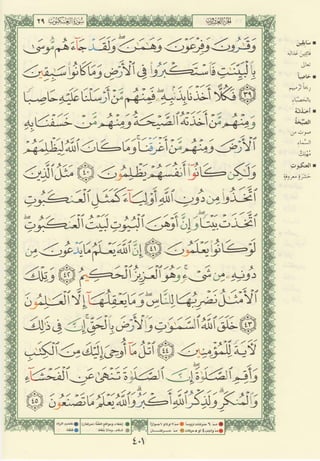 سُورَةُ العَنكَبُوتِ ٢٩
الجُزْءُ العِشْرُونَ
وَقَٰرُونَ وَفِرْعَوْنَ وَهَٰمَٰنَ ۖ وَلَقَدْ جَآءَهُم مُّوسَىٰ
بِٱلْبَيِّنَٰتِ فَٱسْتَكْبَرُوا۟ فِى ٱلْأَرْضِ وَمَا كَانُوا۟ سَٰبِقِينَ
٣٩ فَكُلًّا أَخَذْنَا بِذَنۢبِهِۦ ۖ فَمِنْهُم مَّنْ أَرْسَلْنَا عَلَيْهِ حَاصِبًا
وَمِنْهُم مَّنْ أَخَذَتْهُ ٱلصَّيْحَةُ وَمِنْهُم مَّنْ خَسَفْنَا بِهِ
ٱلْأَرْضَ وَمِنْهُم مَّنْ أَغْرَقْنَا ۚ وَمَا كَانَ ٱللَّهُ لِيَظْلِمَهُمْ
وَلَٰكِن كَانُوٓا۟ أَنفُسَهُمْ يَظْلِمُونَ ٤٠ مَثَلُ ٱلَّذِينَ
ٱتَّخَذُوا۟ مِن دُونِ ٱللَّهِ أَوْلِيَآءَ كَمَثَلِ ٱلْعَنكَبُوتِ
ٱتَّخَذَتْ بَيْتًا ۖ وَإِنَّ أَوْهَنَ ٱلْبُيُوتِ لَبَيْتُ ٱلْعَنكَبُوتِ ۖ
لَوْ كَانُوا۟ يَعْلَمُونَ ٤١ إِنَّ ٱللَّهَ يَعْلَمُ مَا يَدْعُونَ مِن
دُونِهِۦ مِن شَىْءٍ ۚ وَهُوَ ٱلْعَزِيزُ ٱلْحَكِيمُ ٤٢ وَتِلْكَ
ٱلْأَمْثَٰلُ نَضْرِبُهَا لِلنَّاسِ ۖ وَمَا يَعْقِلُهَآ إِلَّا ٱلْعَٰلِمُونَ
٤٣ خَلَقَ ٱللَّهُ ٱلسَّمَٰوَٰتِ وَٱلْأَرْضَ بِٱلْحَقِّ ۚ إِنَّ فِى ذَٰلِكَ
لَءَايَةً لِّلْمُؤْمِنِينَ ٤٤ ٱتْلُ مَآ أُوحِىَ إِلَيْكَ مِنَ ٱلْكِتَٰبِ
وَأَقِمِ ٱلصَّلَوٰةَ ۖ إِنَّ ٱلصَّلَوٰةَ تَنْهَىٰ عَنِ ٱلْفَحْشَآءِ
وَٱلْمُنكَرِ ۗ وَلَذِكْرُ ٱللَّهِ أَكْبَرُ ۗ وَٱللَّهُ يَعْلَمُ مَا تَصْنَعُونَ ٤٥
سابقين
فائتين عذابه
تعالى
حاصبا
بالحصباء
أخذته
الصيحة
صوت من
السماء
مهلك
العنكبوت
حشرة معروفة
٤٠١